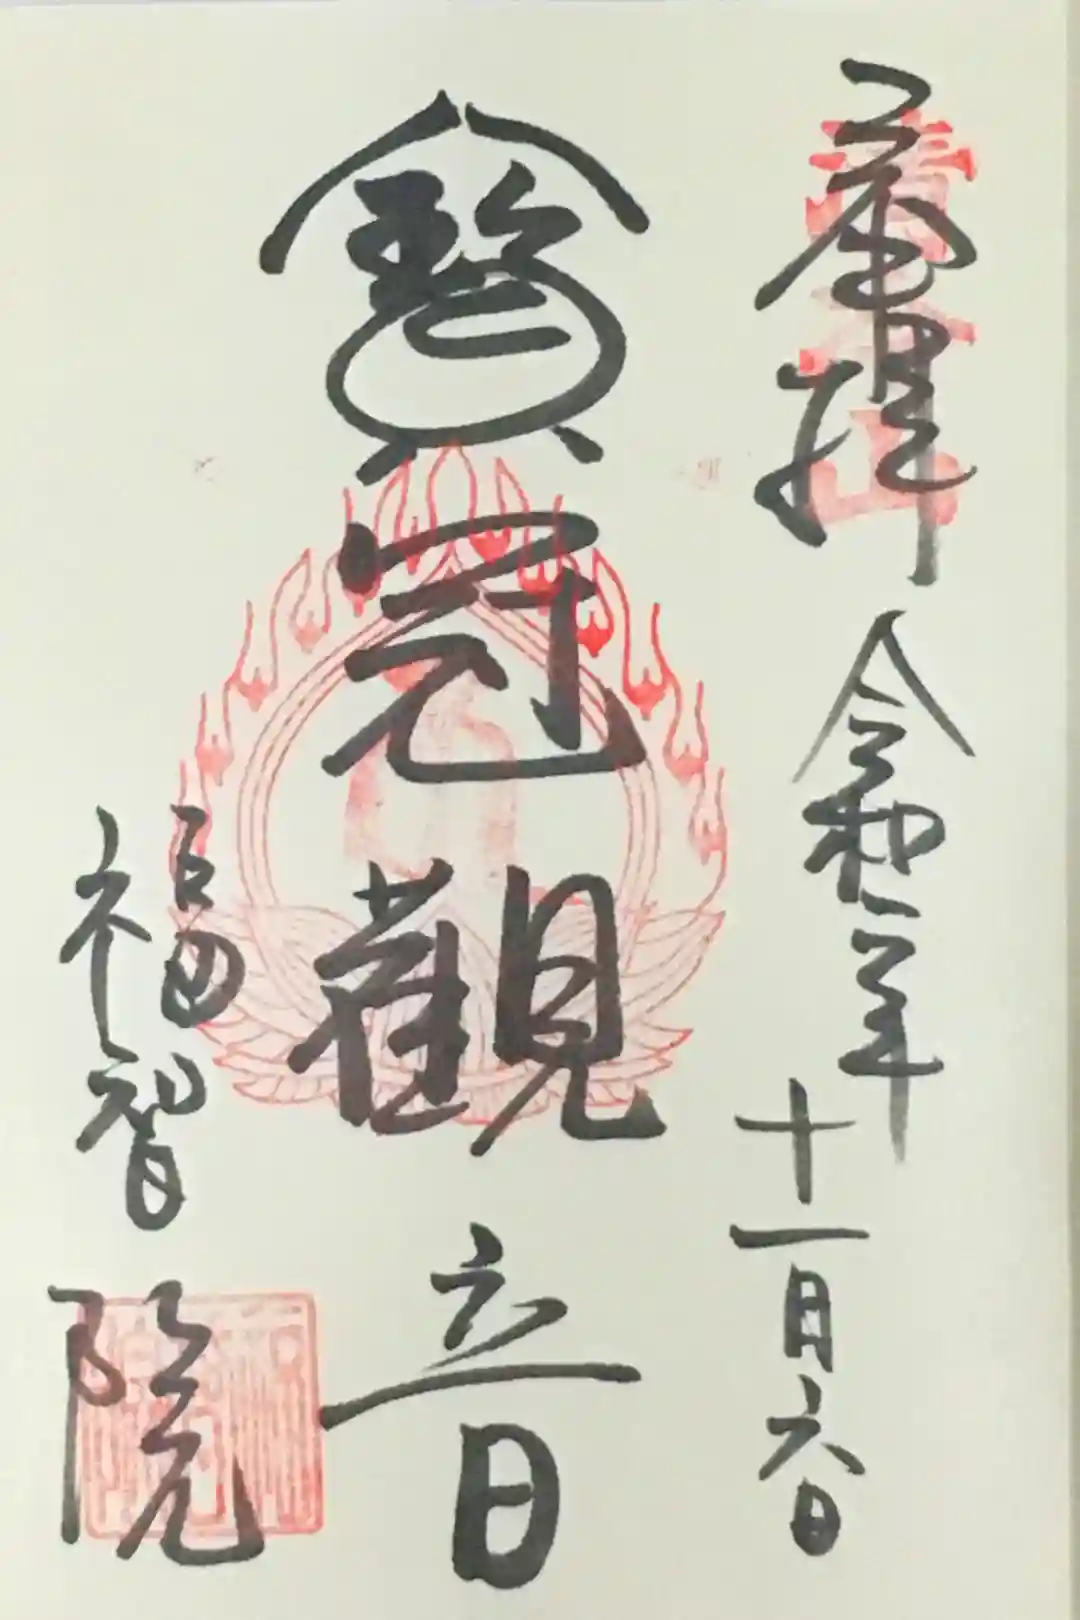 奉拝 令和二年
十一月六日
寶冠觀音
福智院